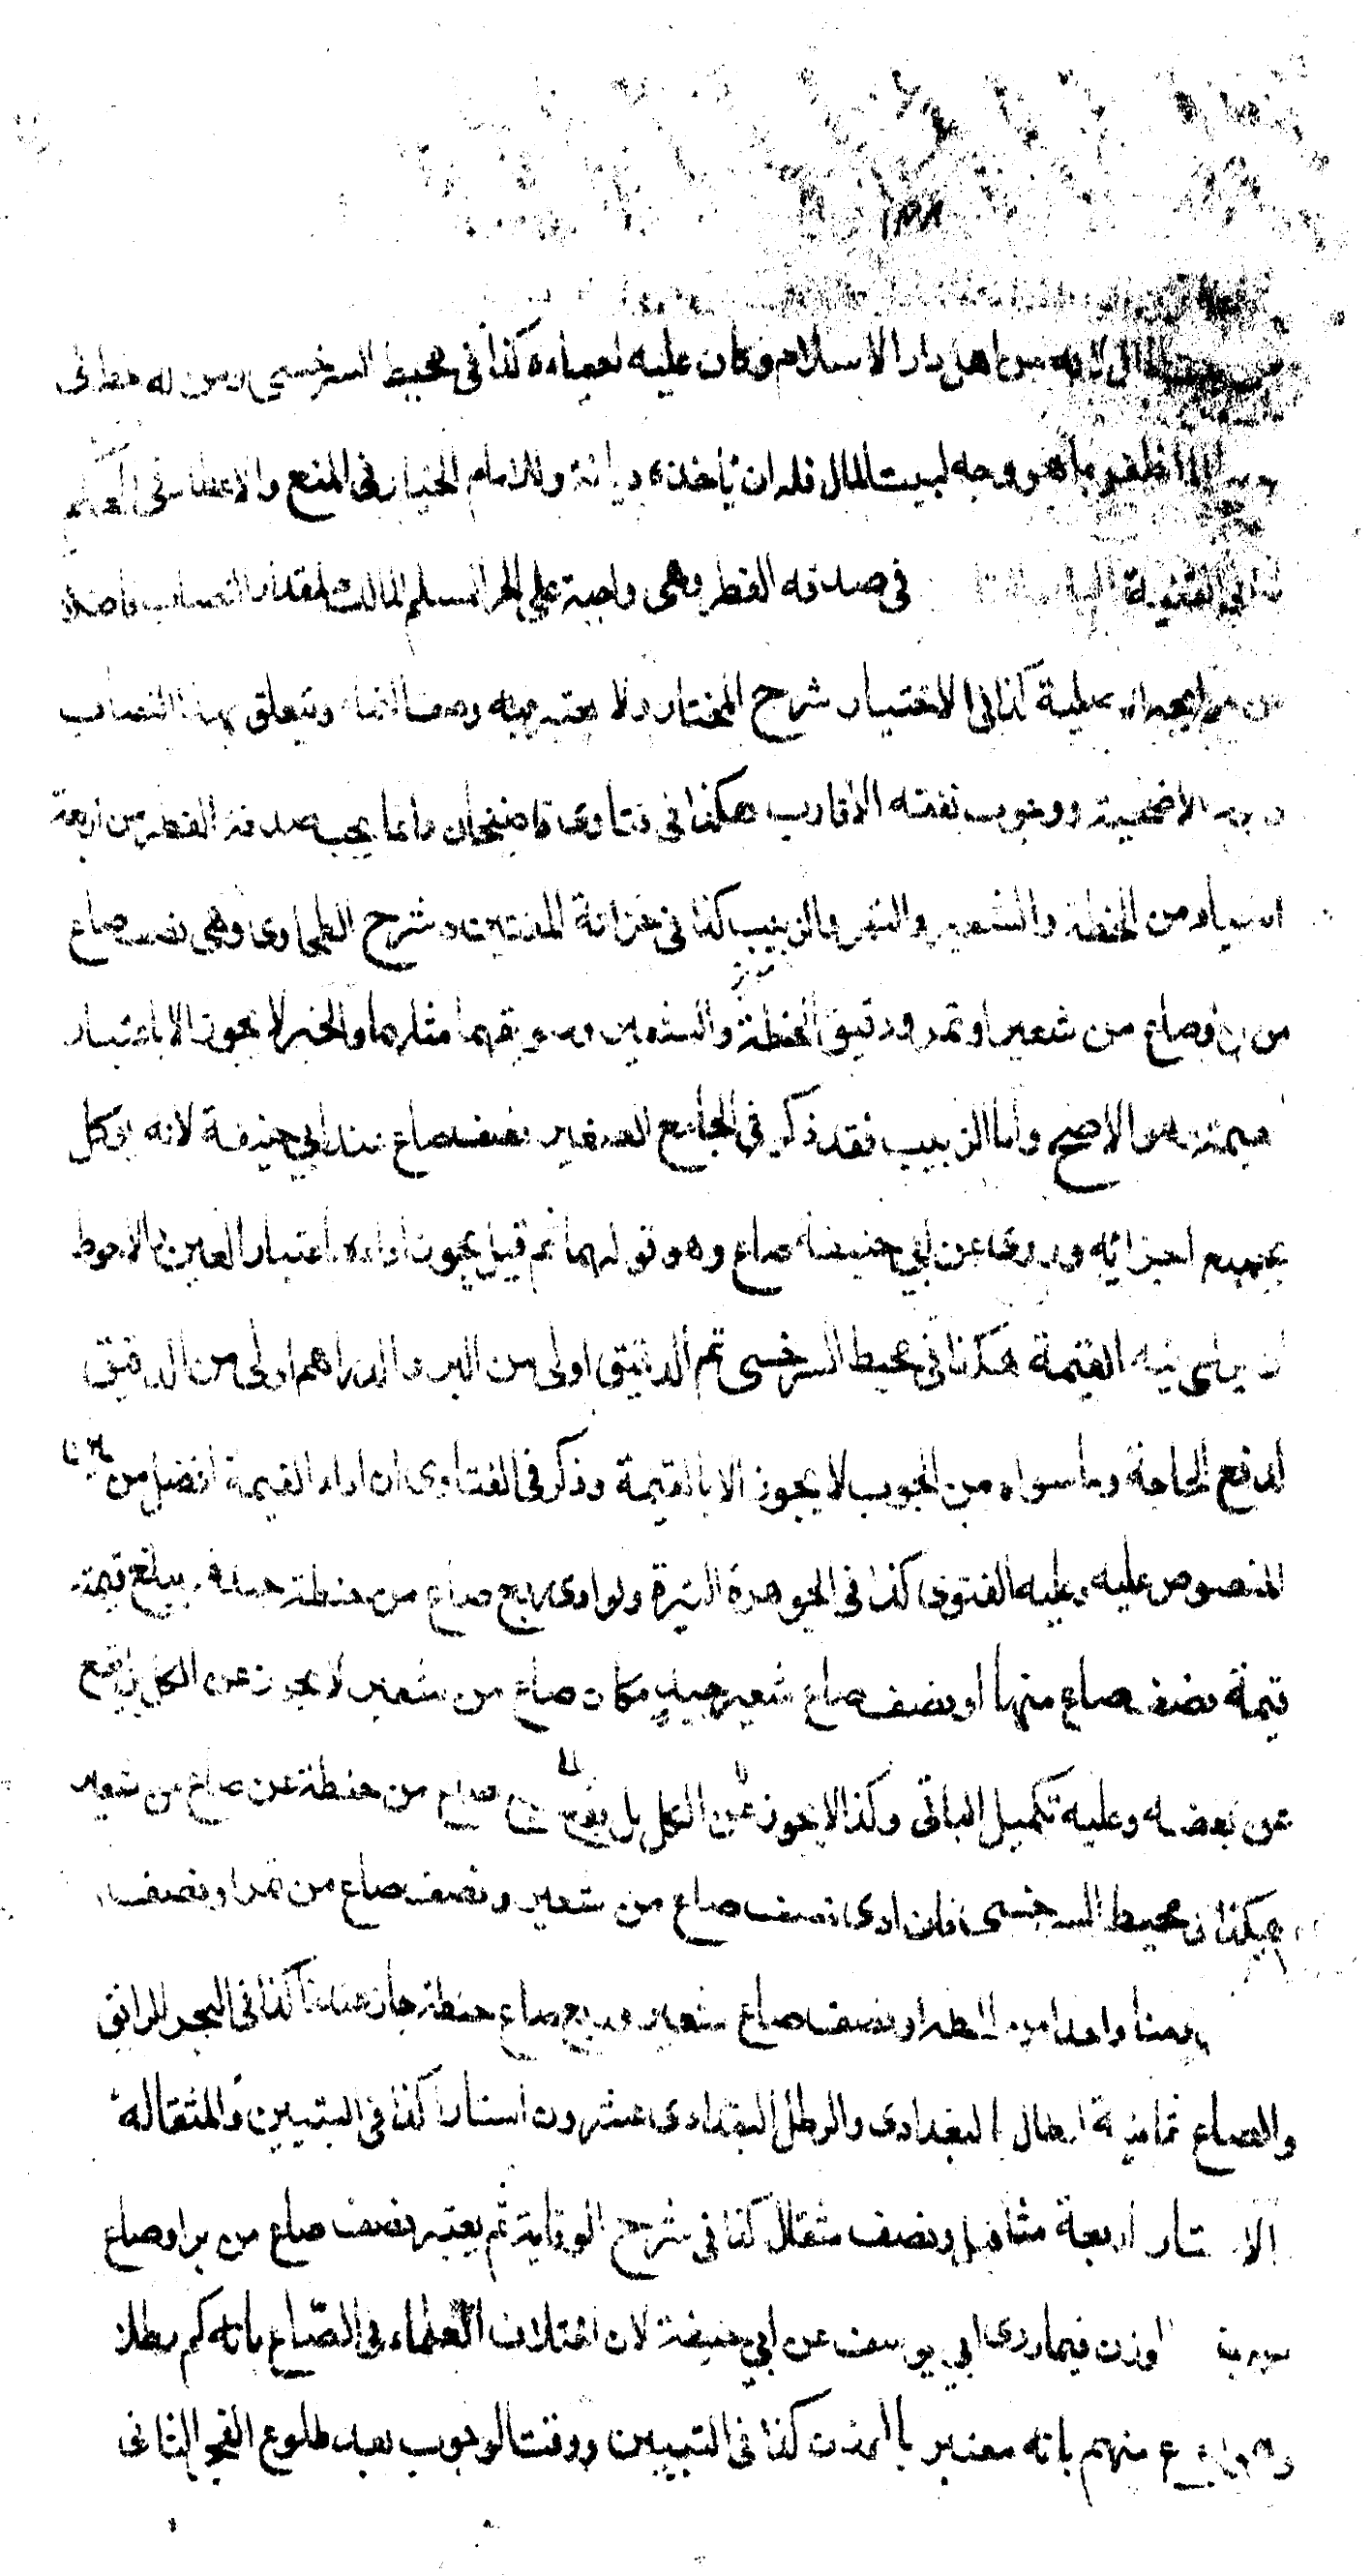 ١٣٨
من اهل دار الاسلام وكان عليه احياءه كذا فى محيط السرخسى ومن له حظ فى
ظفر بما هو وجه لبيت المال فله ان ياخذه ديانة وللامام الخيار فى المنع والاعطاء فى الحكم
كذا فى القنية الباب فى صدقه الفطر وهى واجبة على الحر المسلم المالك لمقدار النصاب فاضلا
عن حوايجه الاصلية كذا فى الاختيار شرح المختار ولا يعتبر فيه وصف النماء ويتعلق بهذا النصاب
وجوب الاضحية ووجوب نفقته الاقارب هكذا فى فتاوى قاضيخان وانما يجب صدقة الفطر من اربعة
اشياء من الحنطة والشعير والتمر والزبيب كذا فى خزانة المفتين وشرح الطحاوى وهى نصف صاع
من بر اوصاع من شعير او تمر ودقيق الحنطة والشعير وسويقهما مثلهما والخبز لا يجوز الا باعتبار
القيمة هو الاصح واما الزبيب فقد ذكر فى الجامع الصغير نصف صاع عند ابى حنيفة لانه يوكل
بجميع اجزائه وروى عن ابى حنيفة صاع وهو قولهما ثم قيل يجوز اداءه باعتبار العين والاحوط
ان يراعى فيه القيمة هكذا فى محيط السرخسى ثم الدقيق اولى من البر والدراهم اولى من الدقيق
لدفع الحاجة وما سواه من الحبوب لا يجوز الا بالقيمة وذكر فى الفتاوى ان اداء القيمة افضل من عين
المنصوص عليه وعليه الفتوى كذا فى الجوهرة النيرة ولو ادى ربع صاع من حنطة جيدة يبلغ قيمته
قيمة نصف صاع منها او نصف صاع شعير جيد مكان صاع من شعير لا يجوز عن الكل بل يقع
عن بعضه وعليه تكميل الباقى وكذا لا يجوز عن الكل بل يقع ربع صاع من حنطة عن صاع من شعير
هكذا فى محيط السرخسى فان ادى نصف صاع من شعير ونصف صاع من تمر او نصف
تمر ومنا واحدا من الحنطة او نصف صاع شعير وربع صاع حنطة جاز عندنا كذا فى البحر الرائق
والصاع ثمانية ارطال البغدادى والرطل البغدادى عشرون استارا كذا فى التبيين والمثقاله
الاستار اربعة مثاقيل ونصف مثقال كذا فى شرح الوقاية ثم يعتبر نصف صاع من بر او صاع
اوزن فيما روى ابى يوسف عن ابى حنيفة لان اختلاف العلماء فى الصّاع بانه كم رطلا
منهم بانه معتبر بالوزن كذا فى التبيين ووقت الوجوب بعد طلوع الفجر الثانى